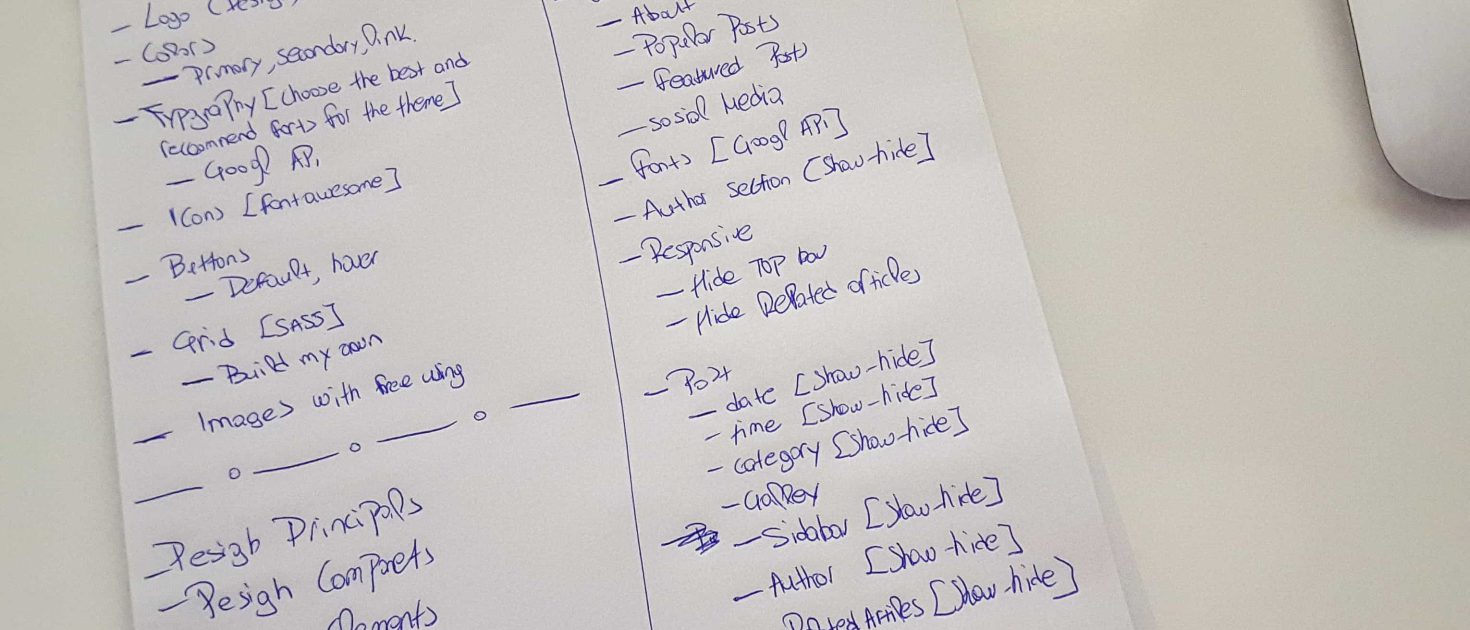 - Logo
- Colors
- Primary, secondary, link.
- Typography [choose the best and
recommend fonts for the theme]
- Googl API
- Icons [fontawesome]
- Bettons
- Default, hover
- Grid [SASS]
- Build my own
- Images with free using
- Desigh Principals
- Desigh
- About
- Popular Posts
- Featured Posts
- sosial Media
- fonts [Googl API]
- Author section [Show-hide]
- Responsive
- Hide TOP bar
- Hide Related articles
- Post
- date [Show-hide]
- time [Show-hide]
- category [Show-hide]
- Gallrey
- Sidabar [Show-hide]
- Author [Show-hide]
[Show-hide]